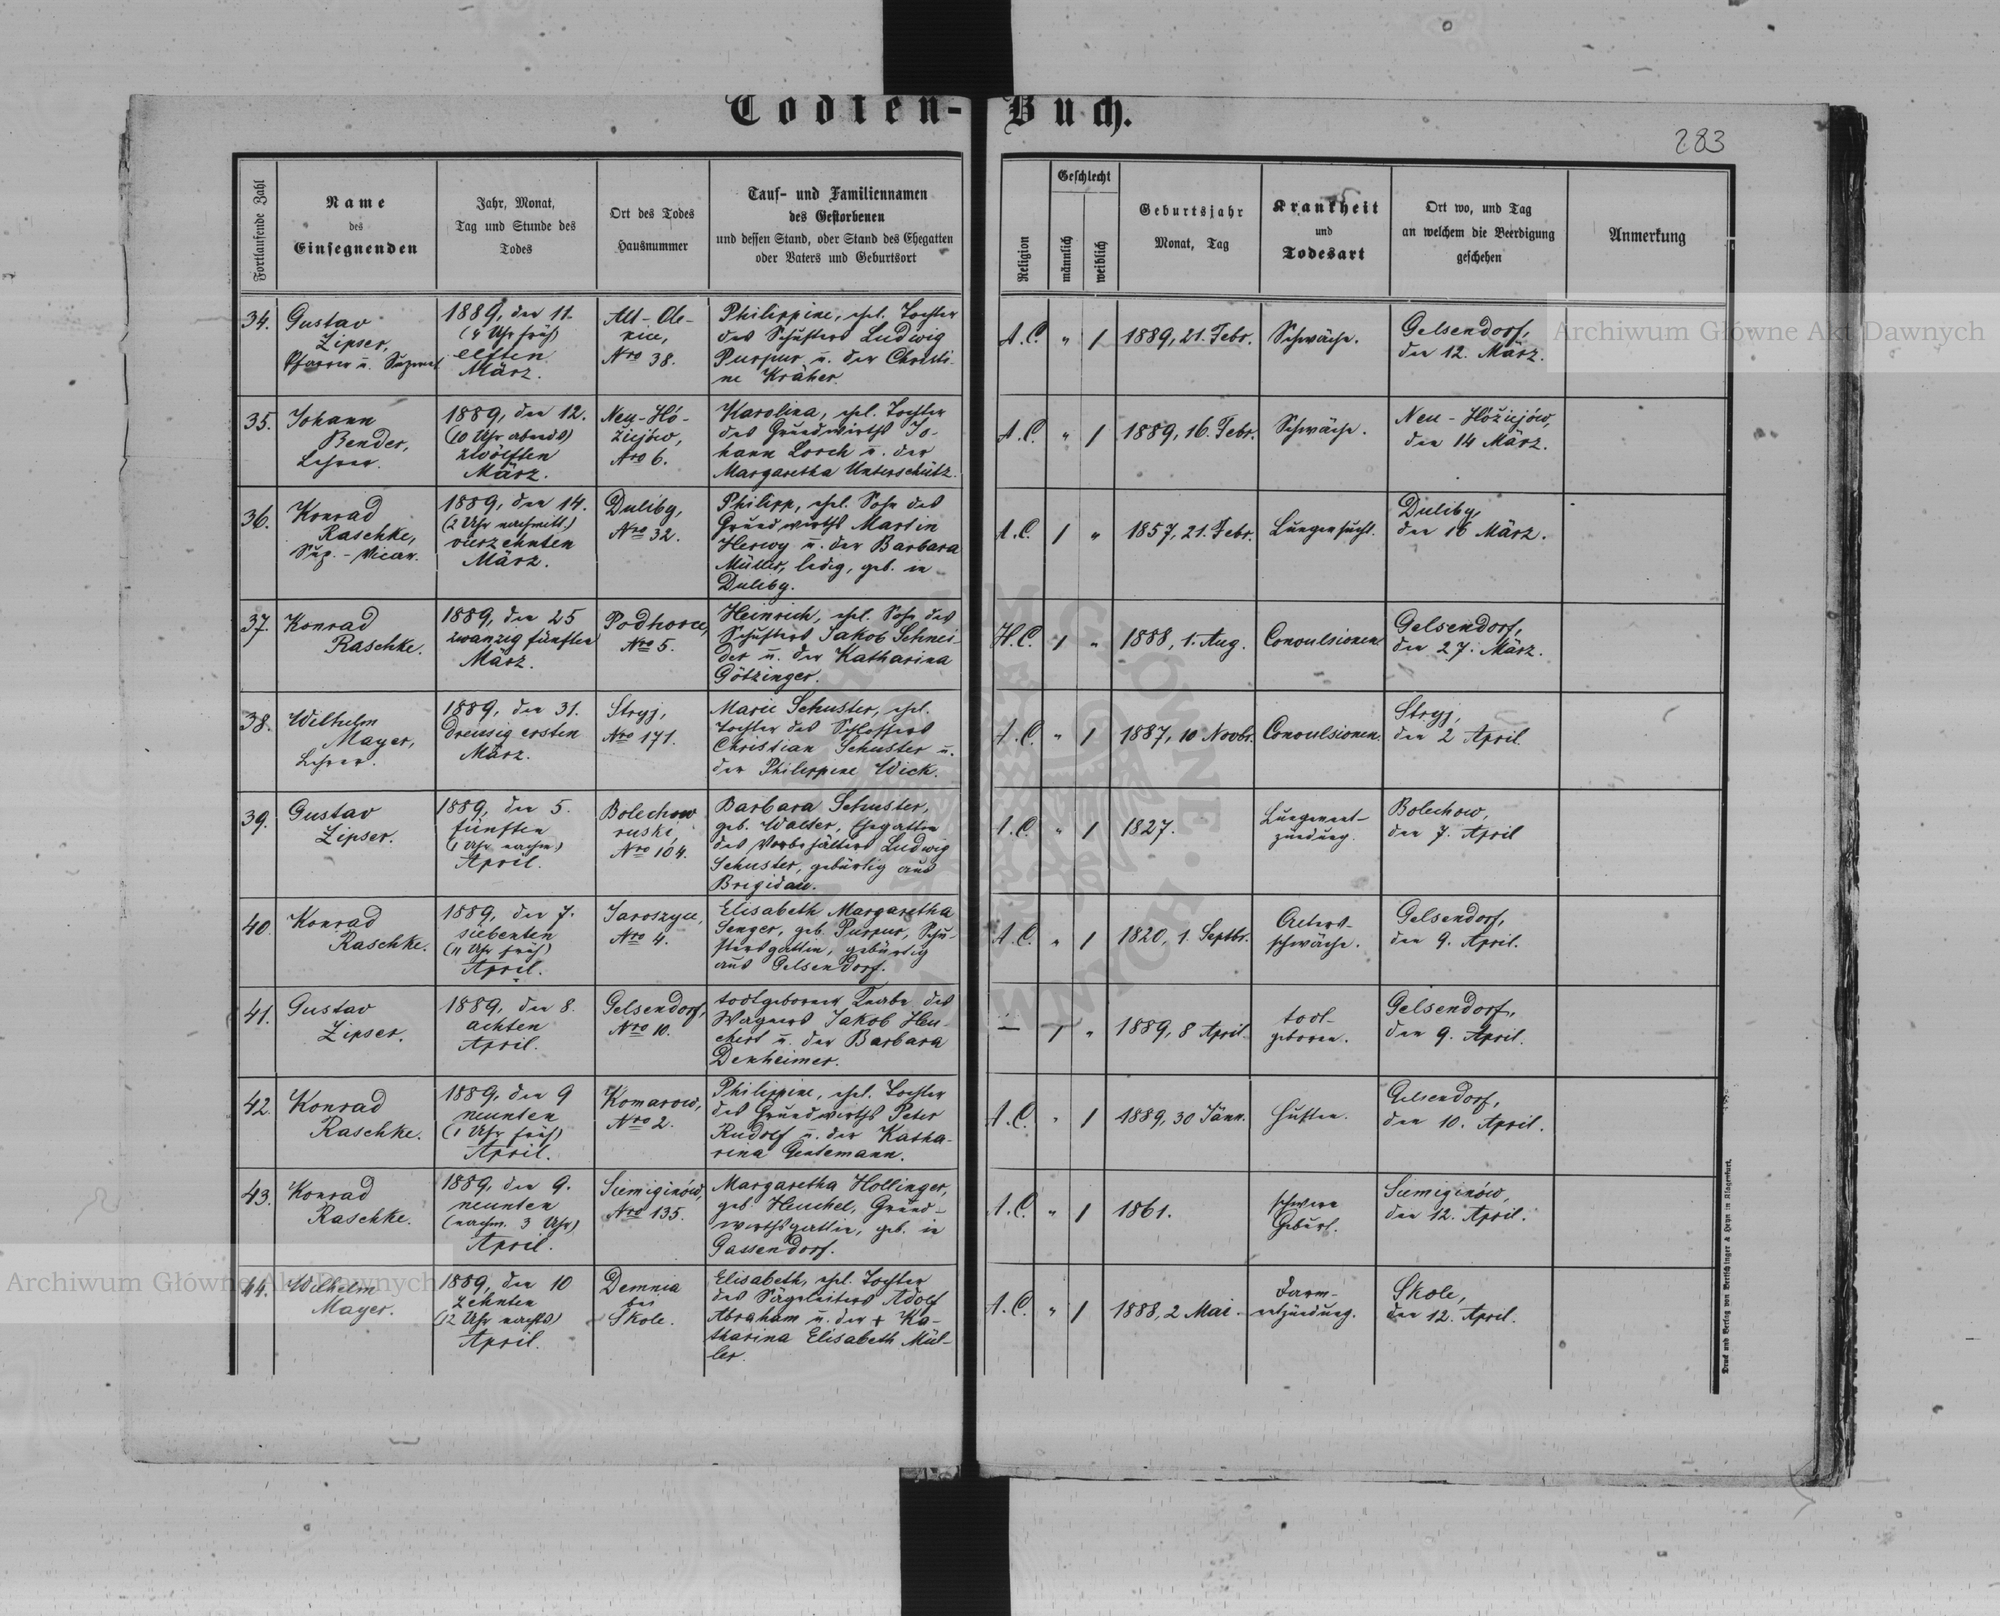 Todten-Buch.
283
Fortlaufende Zahl
Name
des
Einsegnenden
Jahr, Monat,
Tag und Stunde des
Todes
Ort des Todes
Hausnummer
Tauf- und Familiennamen
des Gestorbenen
und dessen Stand, oder Stand des Ehegatten
oder Vaters und Geburtsort
Religion
Geschlecht
männlich
weiblich
Geburtsjahr
Monat, Tag
Krankheit
und
Todesart
Ort wo, und Tag
an welchem die Beerdigung
geschehen
Anmerkung
34.
Gustav
Zipser,
Pfarrer u.
1889, den 11.
(4 Uhr früh)
elften
März.
Alt-Ole-
xice,
Nro 38.
Philippine, ehel. Tochter
des Schusters Ludwig
Purpur u. der Christi-
ne Kräher.
A.C. " 1
1889, 21. Febr.
Schwäche.
Gelsendorf,
den 12. März.
35.
Johann
Bender,
Lehrer.
1889, den 12.
(10 Uhr abends)
zwölften
März.
Neu-Hó-
žiejów,
Nro 6.
Karolina, ehel. Tochter
des Grundwirths Jo-
hann Lorch u. der
Margaretha Unterschütz.
A.C. " 1
1889, 16. Febr.
Schwäche.
Neu-Hóžiejów,
den 14 März.
36.
Konrad
Raschke,
Sup.-Vicar.
1889, den 14.
(2 Uhr nachmitt.)
vierzehnten
März.
Duliby,
Nro 32.
Philipp, ehel. Sohn des
Grundwirths Martin
Herwy u. der Barbara
Müller, ledig, geb. in
Duliby.
A.C. 1 "
1857, 21. Febr.
Lungensucht.
Duliby,
den 16 März.
37.
Konrad
Raschke.
1889, den 25
zwanzig fünften
März.
Podhorce,
Nro 5.
Heinrich, ehel. Sohn des
Schusters Jakob Schnei-
der u. der Katharina
Götzinger.
H.C. 1 "
1888, 1. Aug.
Convulsionen.
Gelsendorf,
den 27. März.
38.
Wilhelm
Mayer,
Lehrer.
1889, den 31.
Dreissig ersten
März.
Stryj,
Nro 171.
Marie Schuster, ehel.
Tochter des Schlossers
Christian Schuster u.
der Philippine Wick.
A.C. " 1
1887, 10 Novbr.
Convulsionen.
Stryj,
den 2 April.
39.
Gustav
Zipser.
1889, den 5.
fünften
(1 Uhr nachm.)
April.
Bolechow
ruski,
Nro 104.
Barbara Schuster,
geb. Walter, Ehegattin
des Ludwig
Schuster, gebürtig aus
Brigidau.
A.C. " 1
1827.
Lungenent-
zündung.
Bolechow,
den 7. April
40.
Konrad
Raschke.
1889, den 7.
siebenten
(11 Uhr früh)
April.
Jaroszyce,
Nro 4.
Elisabeth Margaretha
Senger, geb. Purpur, Schu-
stersgattin, gebürtig
aus Gelsendorf.
A.C. " 1
1820, 1. Septbr.
Alters-
schwäche.
Gelsendorf,
den 9. April.
41.
Gustav
Zipser.
1889, den 8.
achten
April.
Gelsendorf,
Nro 10.
todtgeborner Knabe des
Wagners Jakob Heu-
chert u. der Barbara
Denheimer.
— 1 "
1889, 8 April.
todt-
geboren.
Gelsendorf,
den 9. April.
42.
Konrad
Raschke.
1889, den 9
neunten
(1 Uhr früh)
April.
Komarow,
Nro 2.
Philippine, ehel. Tochter
des Grundwirths Peter
Rudolf u. der Katha-
rina Gentemann.
A.C. " 1
1889, 30 Jänn.
Husten.
Gelsendorf,
den 10. April.
43.
Konrad
Raschke.
1889, den 9.
neunten
(nachm. 3 Uhr)
April.
Siemiginów,
Nro 135.
Margaretha Hollinger,
geb. Heuchel, Grund-
wirthsgattin, geb. in
Gassendorf.
A.C. " 1
1861.
schwere
Geburt.
Siemiginów,
den 12. April.
44.
Wilhelm
Mayer.
1889, den 10
zehnten
(12 Uhr nachts)
April.
Demnia
bei
Skole.
Elisabeth, ehel. Tochter
des Sägeleiters Adolf
Abraham u. der + Ka-
tharina Elisabeth Mül-
ler.
A.C. " 1
1888, 2 Mai.
Darm-
entzündung.
Skole,
den 12. April.
Druck und Verlag von Bertschinger & Heyn in Klagenfurt.
Archiwum Główne Akt Dawnych
Archiwum Główne Akt Dawnych